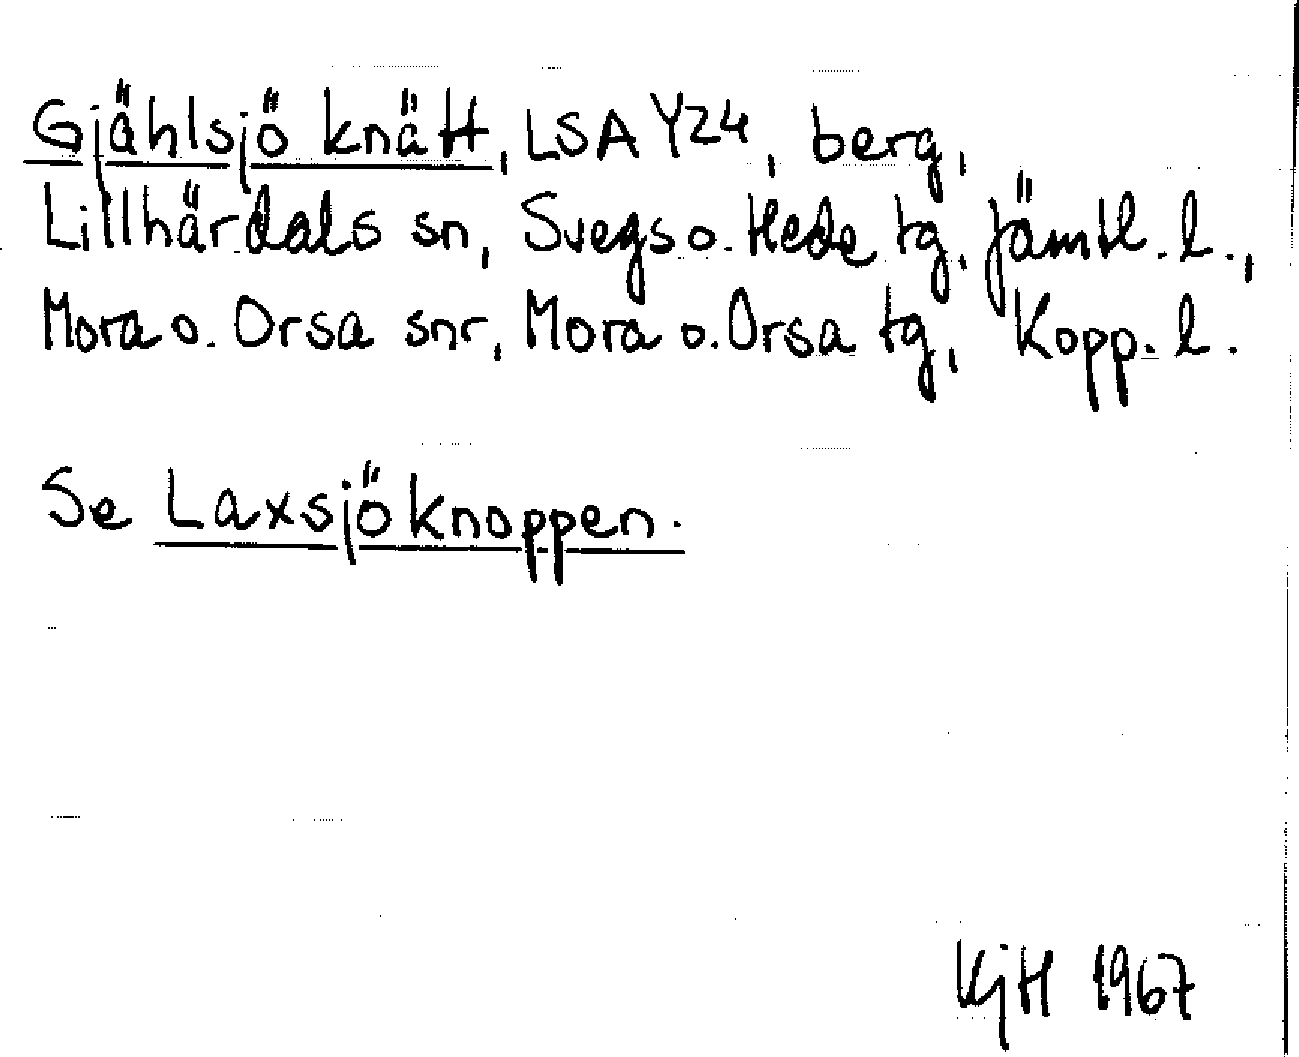 Gjählsjö knätt, LSA Y24, berg,
Lillhärdals sn, Svegs o. Hede tg, Jämtl. l.,
Mora o. Orsa snr, Mora o. Orsa tg, Kopp. l.
Se Laxsjöknoppen.
KjH 1967